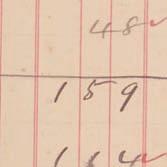 48
159